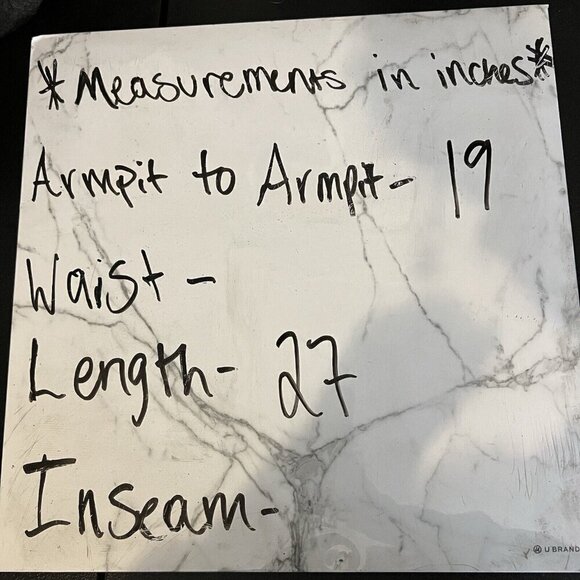 *Measurements in inches*
Armpit to Armpit- 19
Waist-
Length- 27
Inseam-
U BRAND